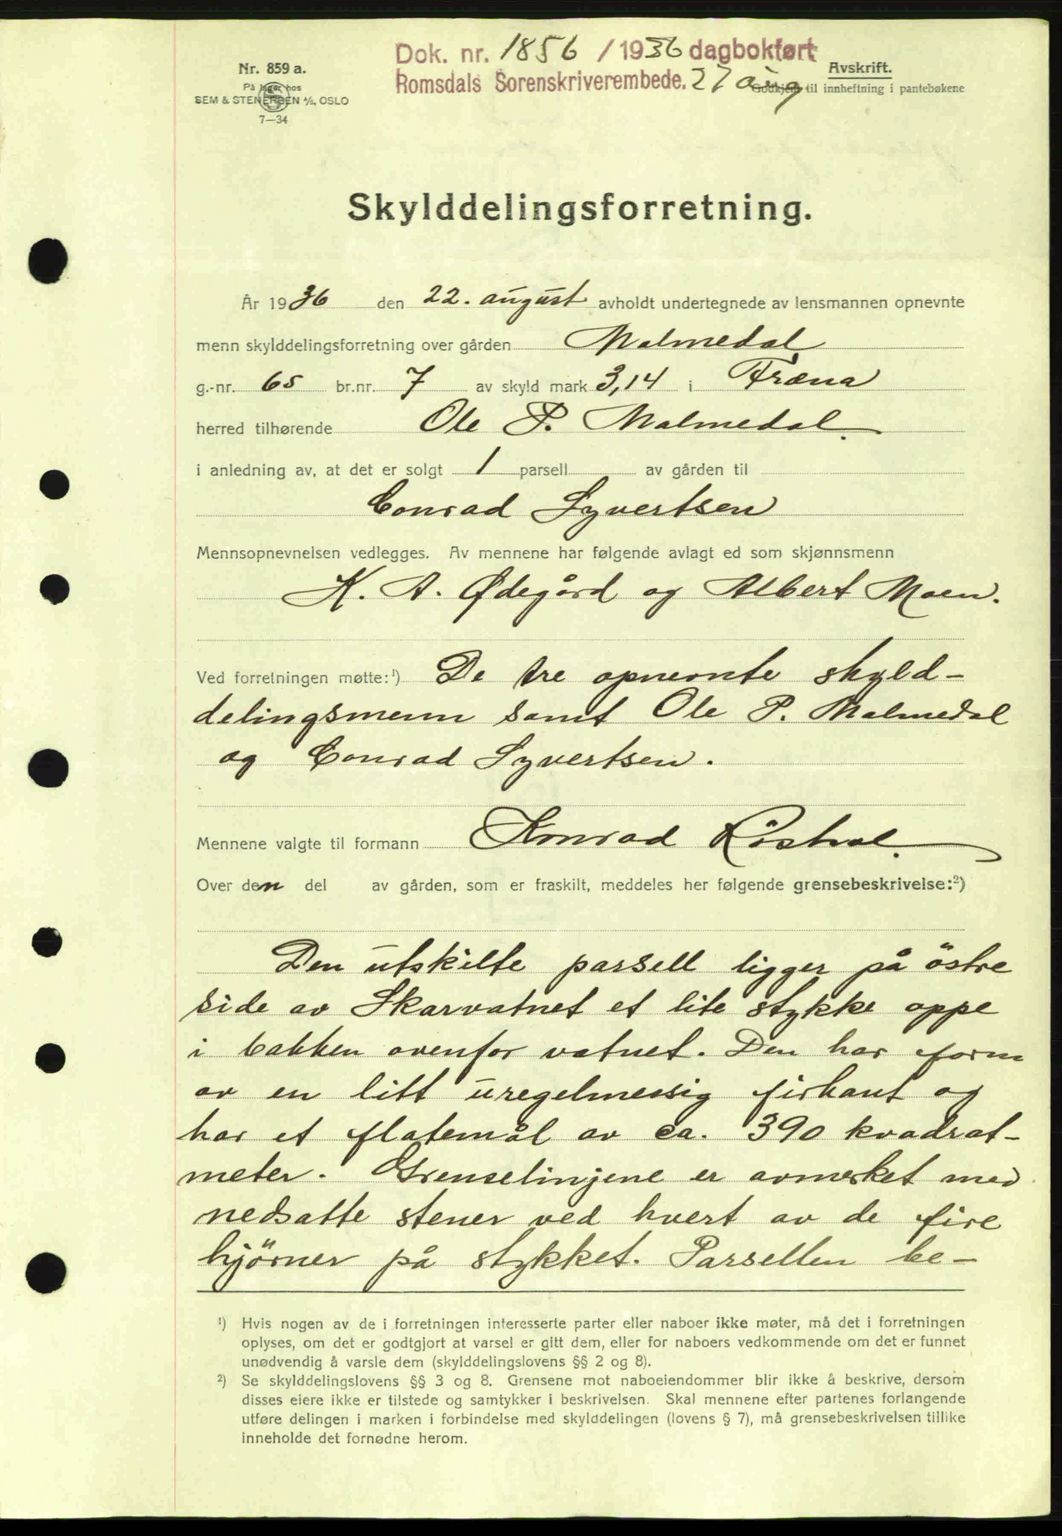 Dok. nr. 1856 / 1936 dagbokført
Romsdals Sorenskriverembede. 27 aug
Nr. 859 a.
På lager hos
SEM & STENERSEN A/S, OSLO
7—34
Avskrift.
Godkjent til innheftning i pantebøkene
Skylddelingsforretning.
År 1936 den 22. august avholdt undertegnede av lensmannen opnevnte
menn skylddelingsforretning over gården Malmedal
g.-nr. 65 br.nr. 7 av skyld mark 3,14 i Fræna
herred tilhørende Ole P. Malmedal
i anledning av, at det er solgt 1 parsell av gården til
Conrad Syvertsen
Mennsopnevnelsen vedlegges. Av mennene har følgende avlagt ed som skjønnsmenn
K. A. Ødegård og Albert Moen.
Ved forretningen møtte:¹) De tre opnevnte skyld-
delingsmenn samt Ole P. Malmedal
og Conrad Syvertsen.
Mennene valgte til formann Konrad Röshol.
Over den del av gården, som er fraskilt, meddeles her følgende grensebeskrivelse:²)
Den utskilte parsell ligger på östre
side av Skarvatnet et lite stykke oppe
i bakken ovenfor vatnet. Den har form
av en litt uregelmessig firkant og
har et flatemål av ca. 390 kvadrat-
meter. Grenselinjene er avmerket med
nedsatte stener ved hvert av de fire
hjörner på stykket. Parsellen be-
¹) Hvis nogen av de i forretningen interesserte parter eller naboer ikke møter, må det i forretningen
oplyses, om det er godtgjort at varsel er gitt dem, eller for naboers vedkommende om det er funnet
unødvendig å varsle dem (skylddelingslovens §§ 2 og 8).
²) Se skylddelingslovens §§ 3 og 8. Grensene mot naboeiendommer blir ikke å beskrive, dersom
disses eiere ikke er tilstede og samtykker i beskrivelsen. Skal mennene efter partenes forlangende
utføre delingen i marken i forbindelse med skylddelingen (lovens § 7), må grensebeskrivelsen tillike
inneholde det fornødne herom.